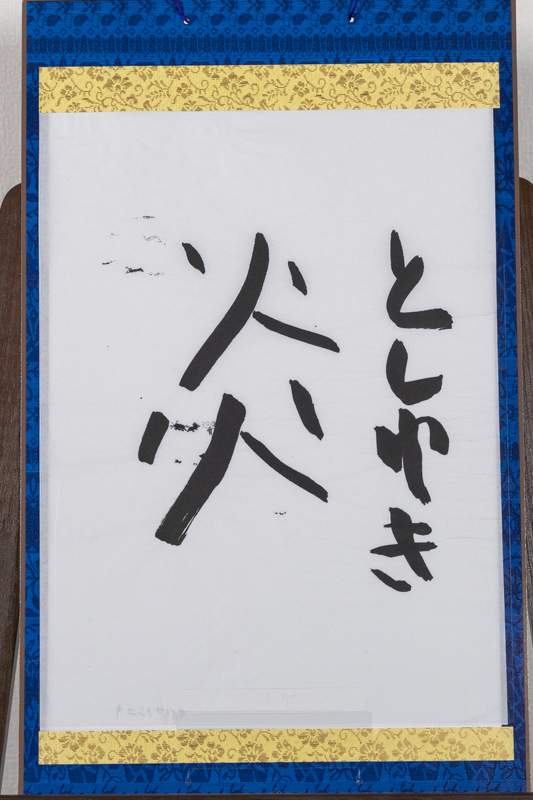 としゆき
炎